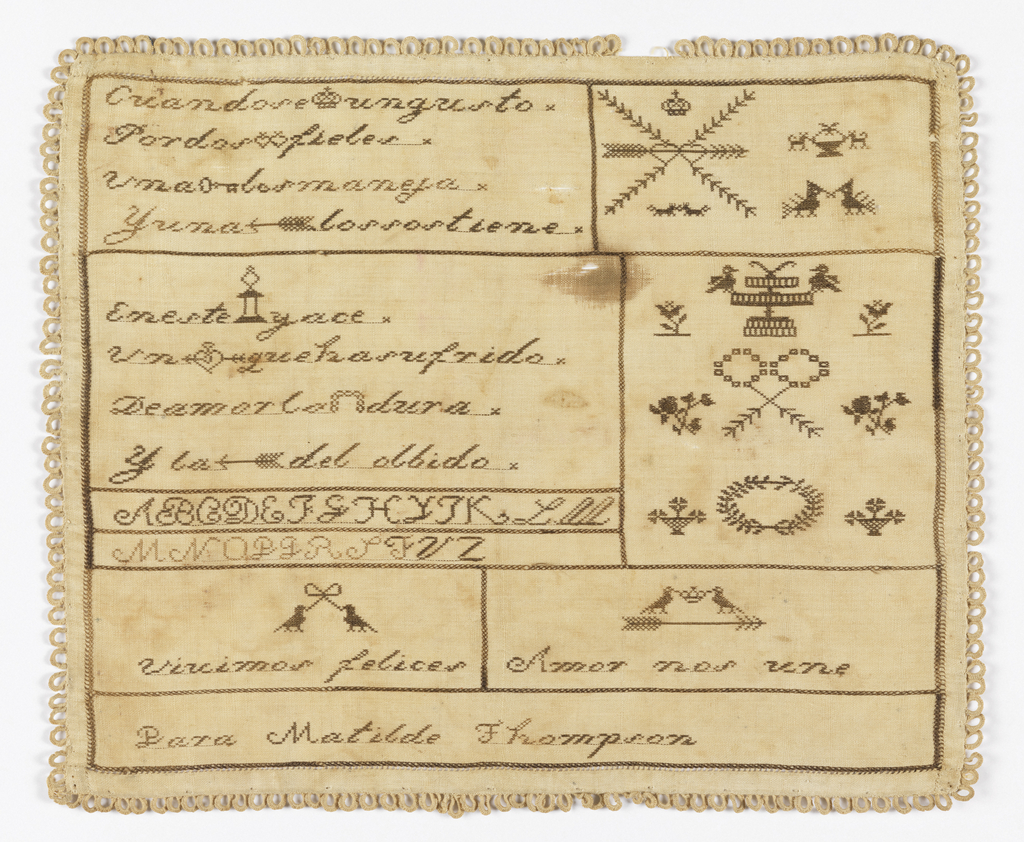 Criandose un gusto
Por dos fieles
Una los maneja
Y una los sostiene
En este yace
Un que ha sufrido
De amor la dura
Y la del olbido
A B C D E F G H Y J K L Ll
M N O P Q R S T V Z
Vivimos felices
Amor nos une
Para Matilde Thompson